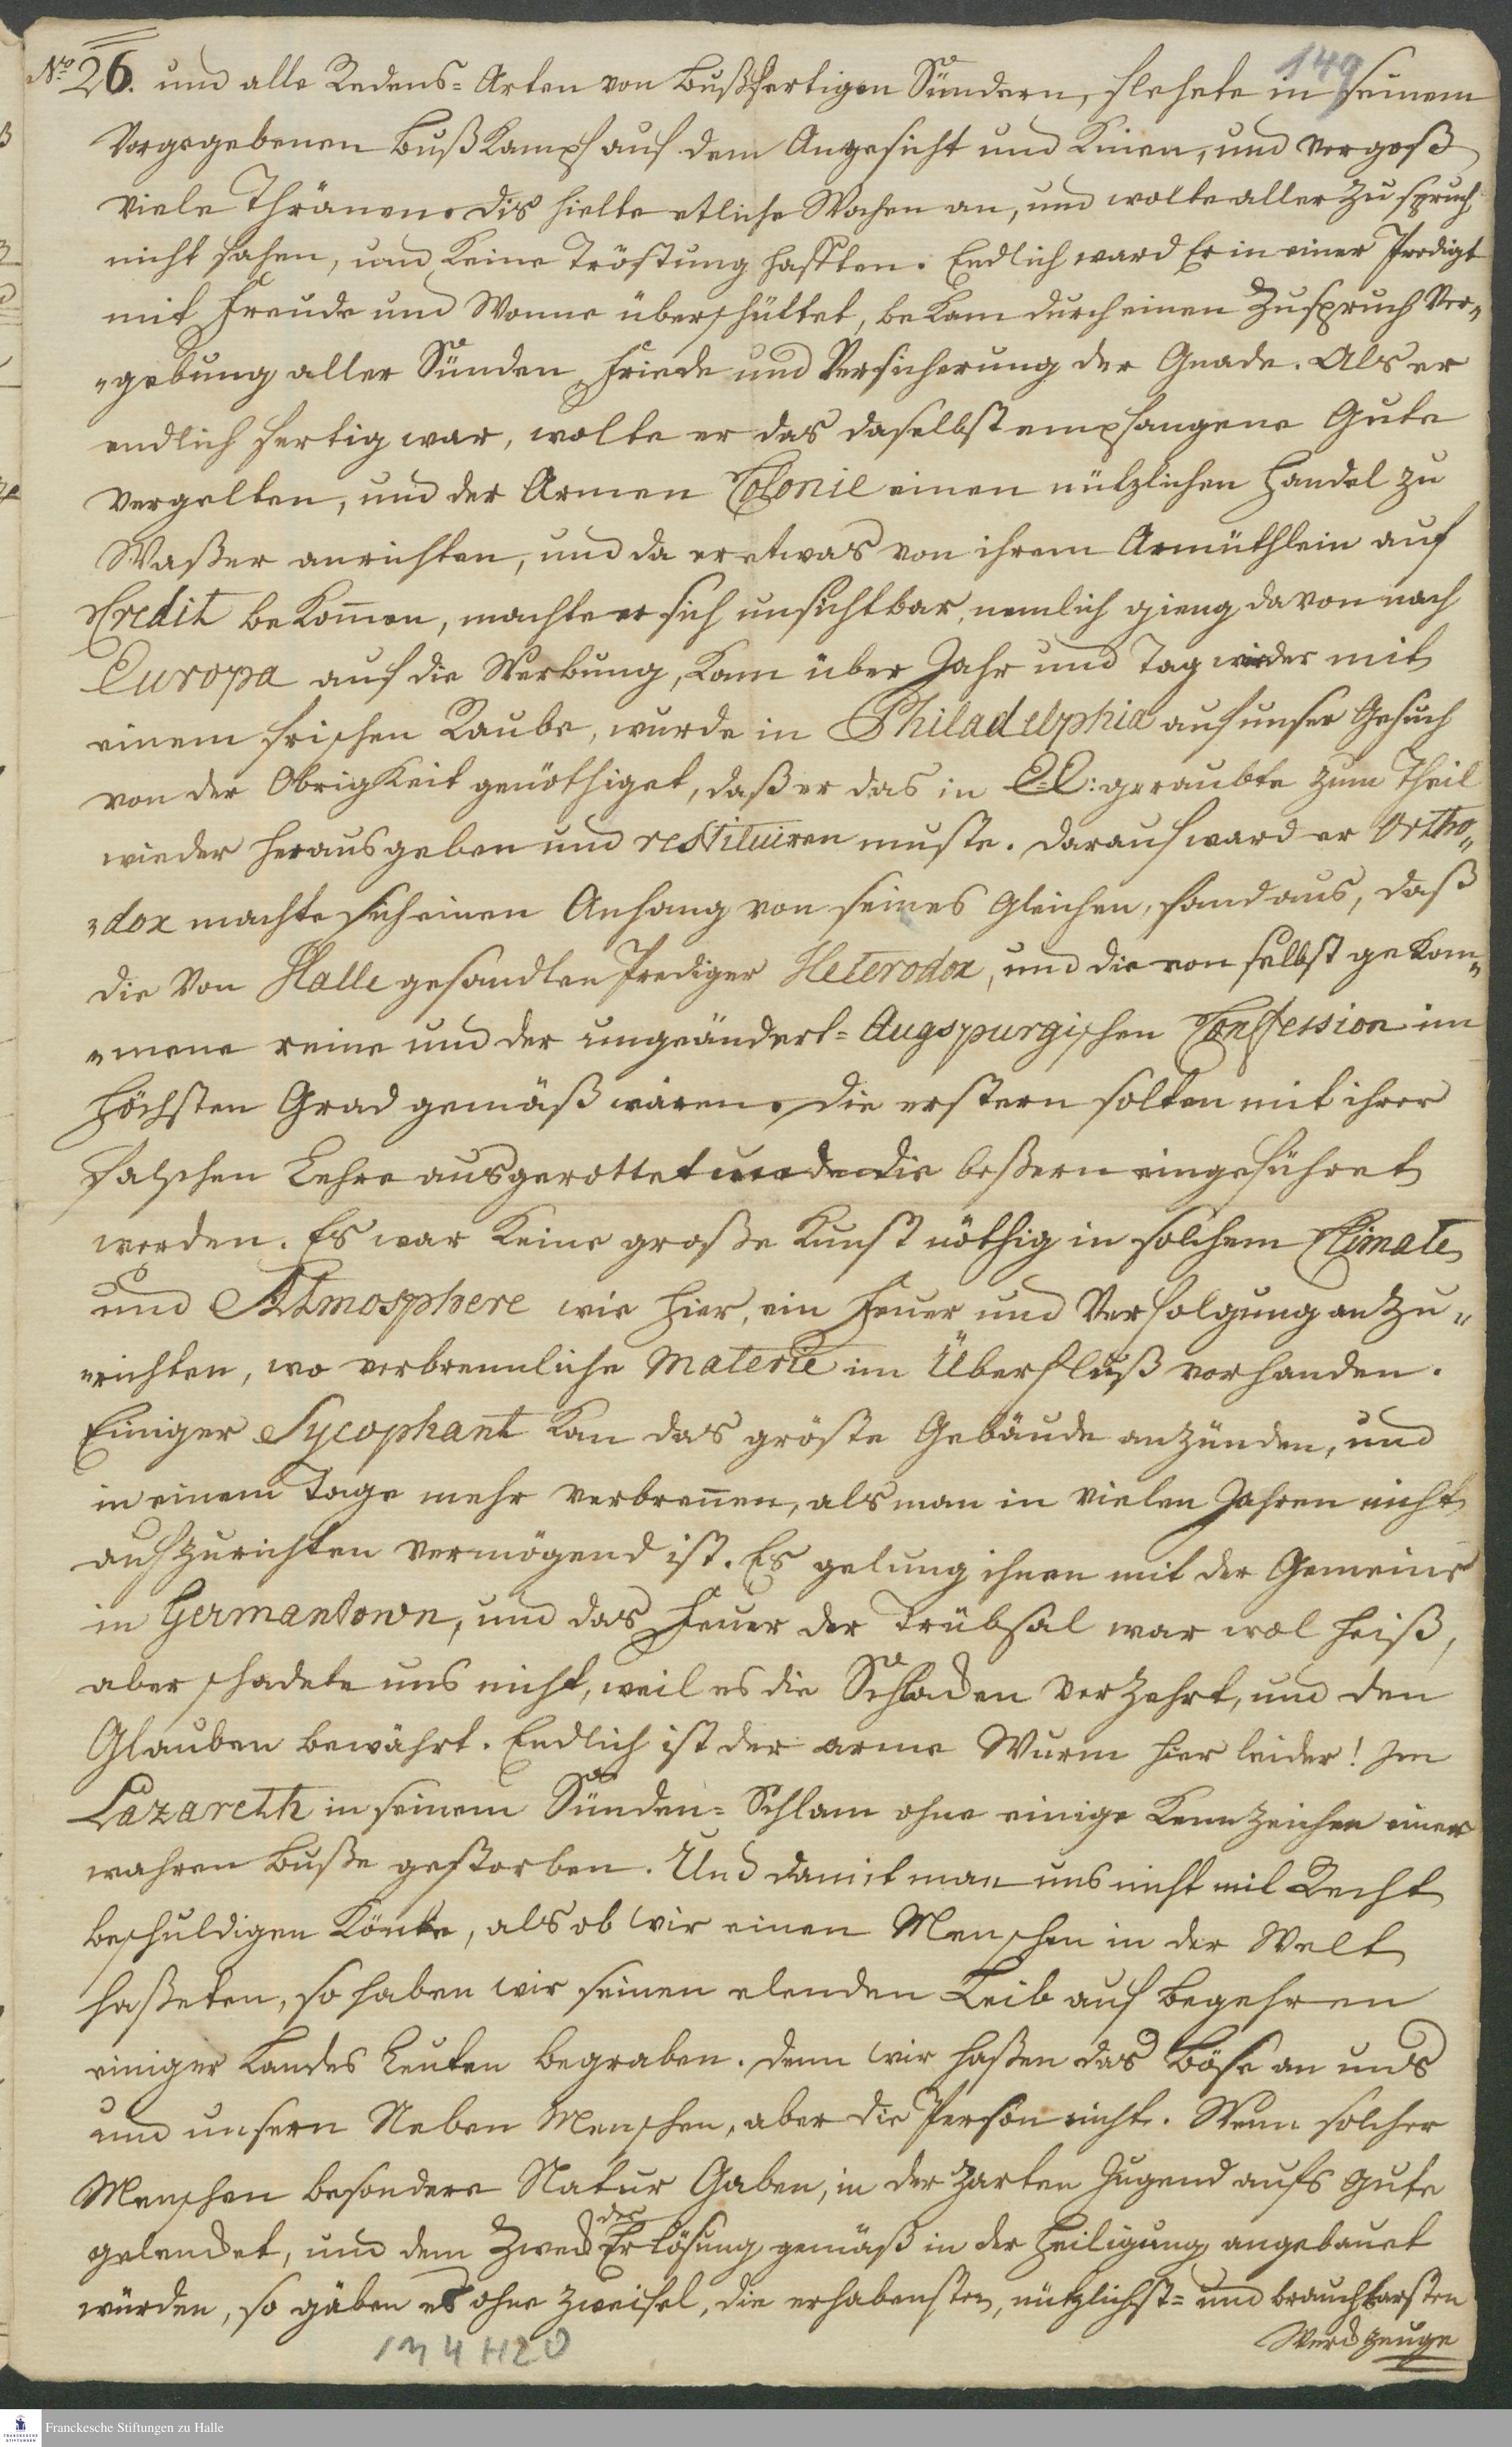 149
No. 26. und alle Redens-Arten von Bußfertigen Sündern, flehete in seinem
Vorgegebenen Bußkampf auf dem Angesicht und Knien, und vergoß
viele Thränen. Dis hielte etliche Wochen an, und wolte aller Zuspruch
nicht fahen, und keine Tröstung hafften. Endlich ward Er in einer Predigt
mit Freude und Wonne überschüttet, bekam durch einen Zuspruch Ver„
„gebung aller Sünden Friede und Versicherung der Gnade. Als er
endlich fertig war, wolte er das daselbst empfangene Gute
vergelten, und der Armen Colonie einen nützlichen Handel zu
Waßer anrichten, und da er etwas von ihrem Armüthlein auf
Credit bekom̄en, machte er sich unsichtbar, nemlich gieng davon nach
Europa auf die Werbung, kam über Jahr und Tag wieder mit
einem frischen Raube, wurde in Philadelphia auf unser Gesuch
von der Obrigkeit genöthiget, daß er das in E-E: geraubte zum Theil
wieder herausgeben und restituiren muste. Darauf ward er Ortho„
„dox machte sich einen Anhang von seines Gleichen, fand aus, daß
die Von Halle gesandten Prediger Heterodox, und die von selbst gekom„
„mene reine und der ungeändert-Augspurgischen Confession im
höchsten Grad gemäß wären. Die erstern solten mit ihrer
falschen Lehre ausgerottet und die beßern eingeführet
werden. Es war keine große Kunst nöthig in solchem Climate
und Atmosphere wie hier, ein Feuer und Verfolgung anzu„
„richten, wo verbrennliche Materie im Überfluß vorhanden.
Einiger Sycophant kan das gröste Gebäude anzünden, und
in einem Tage mehr verbren̄en, als man in vielen Jahren nicht
aufzurichten vermögend ist. Es gelung ihnen mit der Gemeine
in Germantown, und das Feuer der Trübsal war wol heiß,
aber schadete uns nicht, weil es die Schlacken verzehrt, und den
Glauben bewährt. Endlich ist der arme Wurm hier leider! Im
Lazareth in seinem Sünden-Schlam ohne einige Kennzeichen einer
wahren Buße gestorben. Und damit man uns nicht mit Recht
beschuldigen könte, als ob wir einen Menschen in der Welt
haßeten, so haben wir seinen elenden Leib auf Begehren
einiger Landes Leuten begraben. Denn wir haßen das Böse an uns
und unsern Neben Menschen, aber die Person nicht. Wenn solcher
Menschen besondere Natur Gaben, in der zarten Jugend aufs Gute
gelencket, und dem Zweck der Erlösung gemäß in der Heiligung angebauet
würden, so gäben es ohne Zweifel, die erhabensten, nützlichst- und brauchbarsten
Werckzeuge
1M 4 H20
Franckesche Stiftungen zu Halle